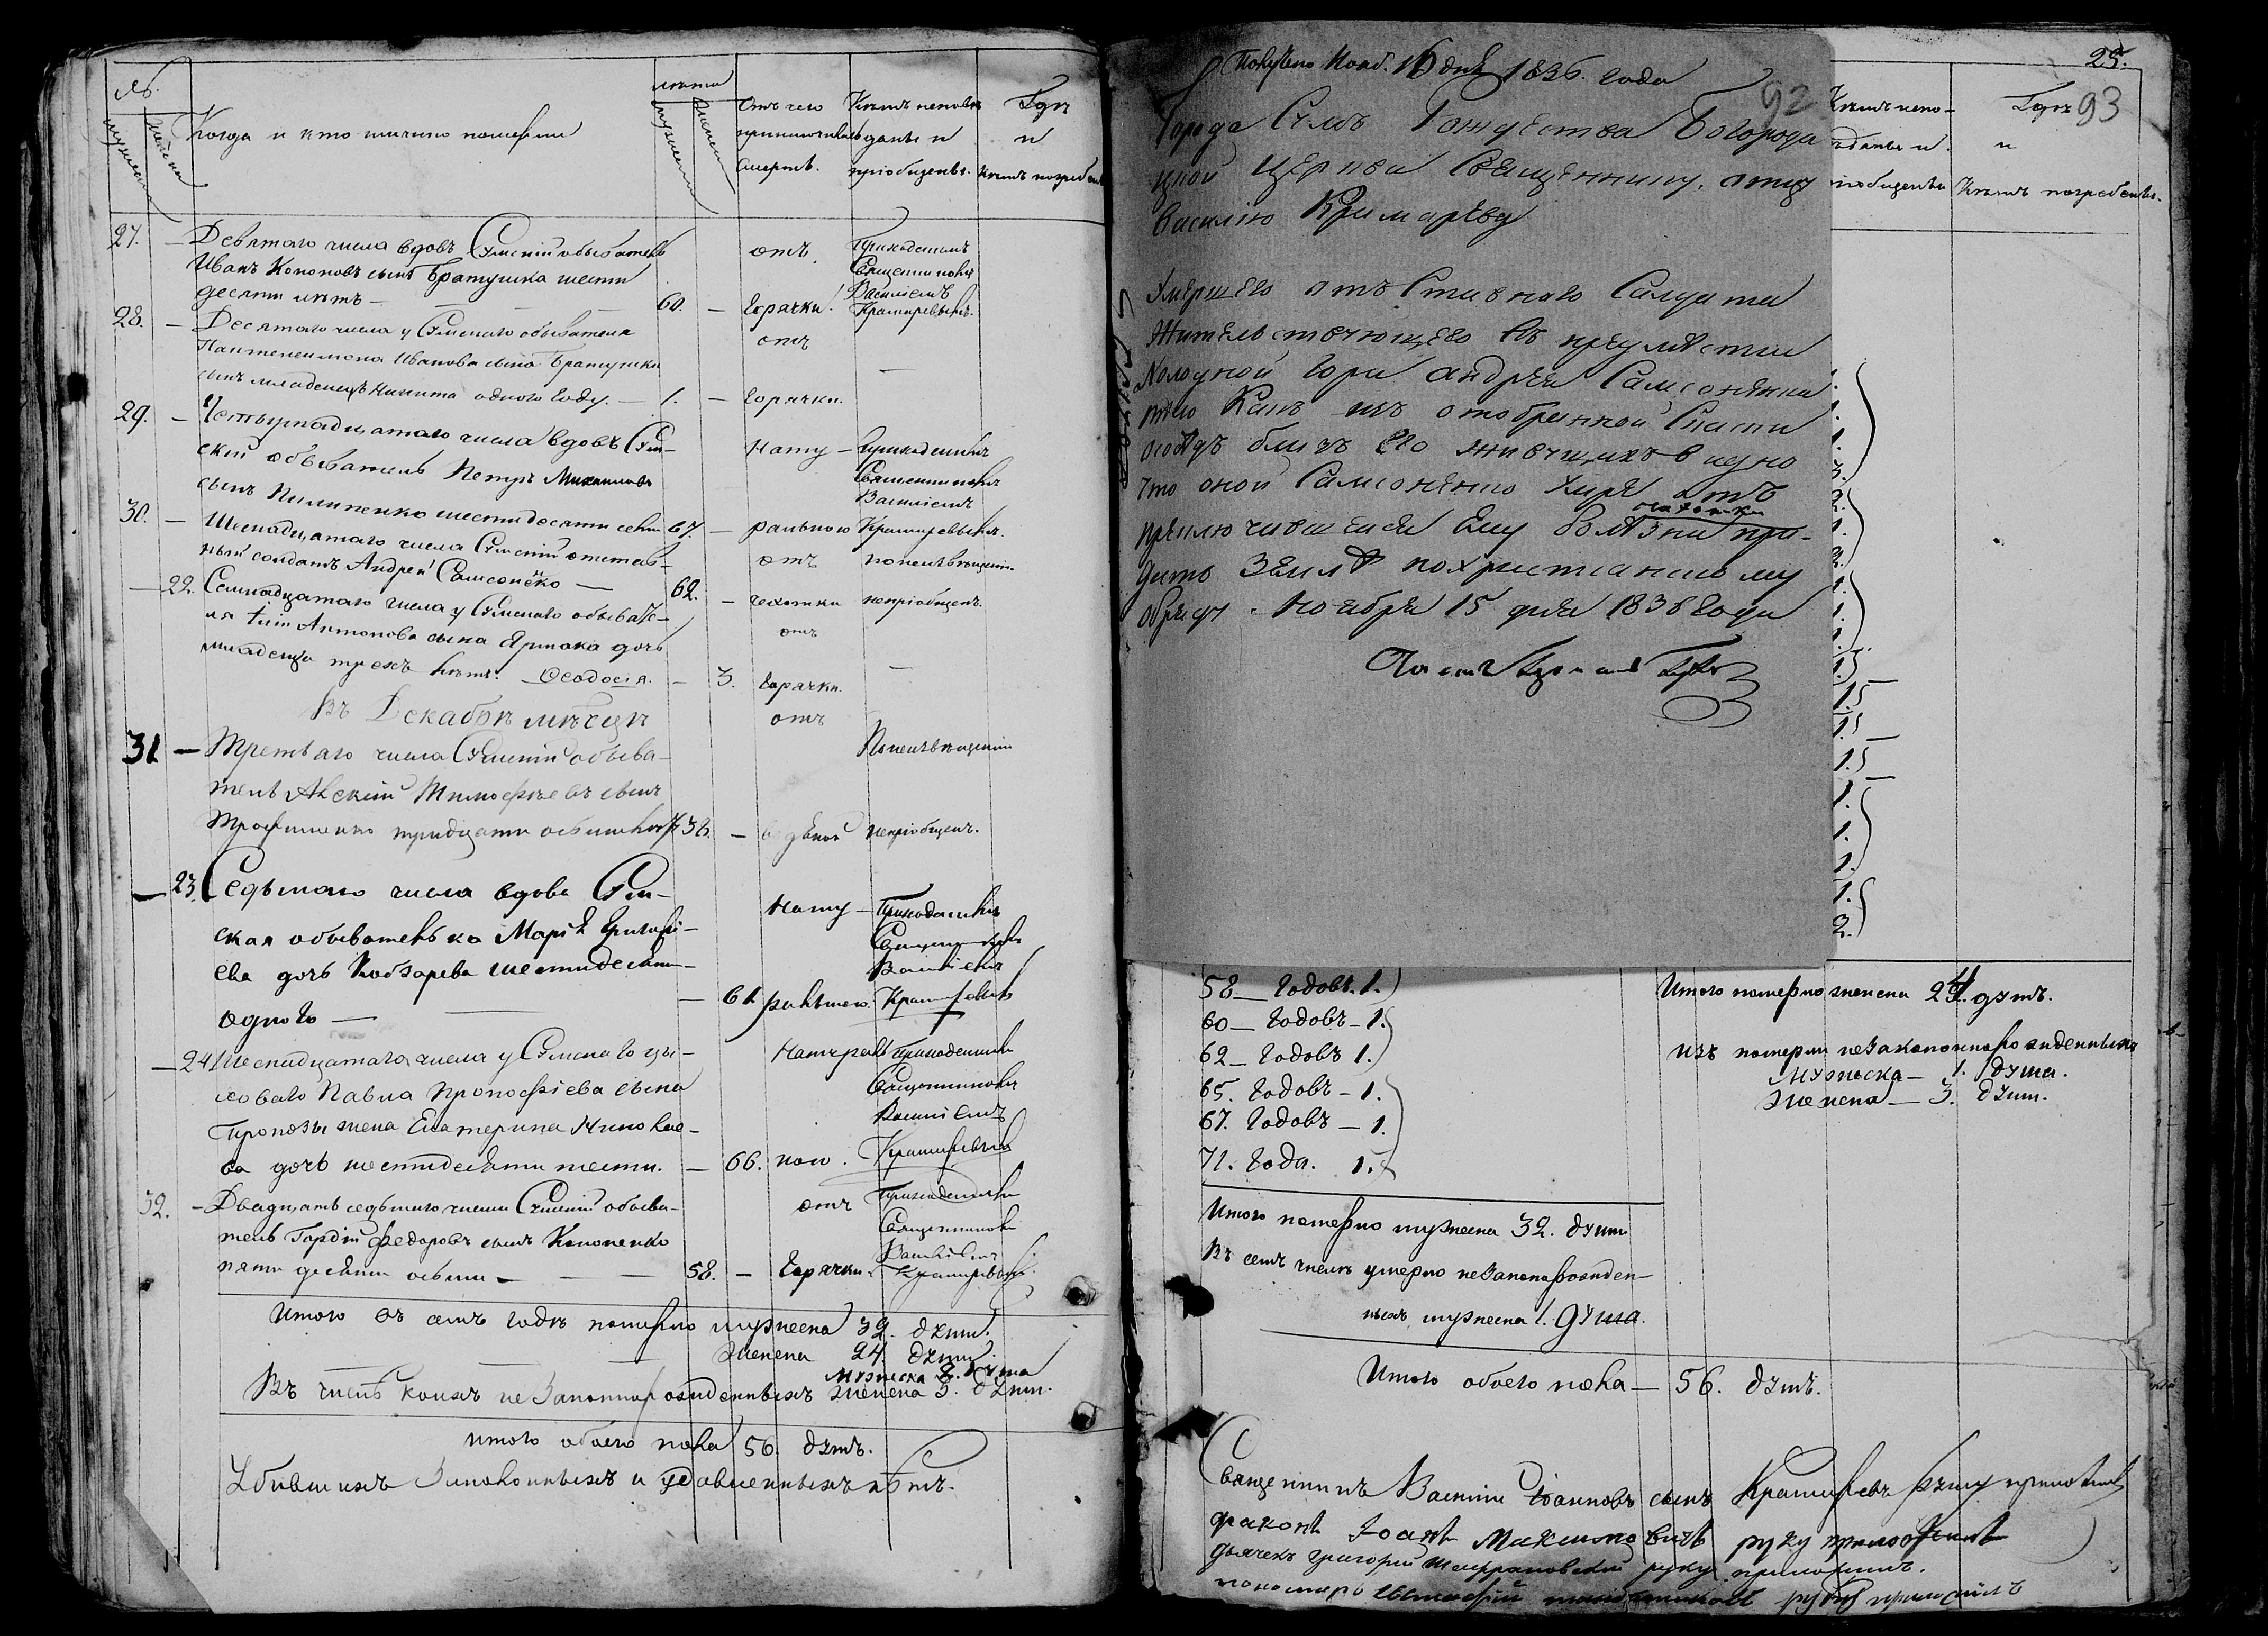 №.
Когда и кто имянно померли
лѣта
мужеска
женска
мужеска
женска
Отъ чего
приключилась
смерть.
Кѣмъ исповѣ
даны и
пріобщены.
Гдѣ
и
кѣмъ погребены
27. — Девятого числа вдовъ Сумскій обыватель
Иванъ Кононовъ сынъ Братушка шести
десяти лѣтъ — 60. —
отъ
горячки.
Приходскимъ
Священникомъ
Василіемъ
Крамаревымъ.
28. — Десятого числа у Сумскаго обывателя
Пантелеимона Иванова сына Братушки
сынъ младенецъ Никита одного году. — 1. —
отъ
горячки.
—
29. — Четырнадцатаго числа вдовъ Сум-
скій обыватель Петръ Михаиловъ
сынъ Пилипенко шестидесяти семи 67. —
нату-
ральною
Приходскимъ
Священникомъ
Василіемъ
Крамаревымъ.
30. — Шеснадцатаго числа Сумскій отстав-
ный солдатъ Андрей Самсонѣко — 62. —
отъ
чехотки
непріобщенъ.
— 22. Семнадцатаго числа у Сумскаго обывате-
ля Антонова сына Ярмака дочь
младенца трехъ лѣтъ. Ѳеодосія. — 3.
отъ
горячки.
—
Въ Декабрѣ мѣсяцѣ
31 — Третьаго числа Сумскій обыва-
тель Алексій Тимофѣевъ сынъ
Трофименко тридцати осьми лѣтъ 38. —
отъ
водяной
непріобщенъ.
— 23. Седьмаго числа вдова Сум-
ская обывателька Марія Григорі-
ева дочь Кобзарева шестидесяти-
одного — — 61.
нату-
ральною.
Приходскимъ
Священникомъ
Василіемъ
Крамаревымъ
— 24 Шеснадцатаго числа у Сумскаго цы-
ховаго Павла Прокофіева сына
жена Екатерина Николае-
ва дочь шестидесяти шести. — 66.
натураль
ною.
Приходскимъ
Священникомъ
Василіемъ
Крамаревымъ
32. — Двадцать седьмаго числа Сумскій обыва-
тель Гордій Федоровъ сынъ Кононенко
пяти десяти осьми — 58. —
отъ
горячки.
Приходскимъ
Священникомъ
Василіемъ
Крамаревымъ.
Итого въ семъ годѣ померло мужеска 32. душъ.
женска 24. душъ.
мужеска 1. душа
Въ числѣ коихъ незаконнорожденныхъ женска 3. душъ.
итого обоего пола 56. душъ.
Убившихъ и удавленныхъ нѣтъ.
Получено Нояб. 16 дня 1836. года
92
Города Сумъ Рождества Богороди
цкой церкви Священнику, отцу
Василію Крамареву
Умершего отъ Ставного Салдата
жительствующего въ предмѣстии
Холодной гори Андрѣя Самсонѣнка
тѣло Какъ изъ отобранной
сосѣдъ близъ его живущихъ видно
что оной Самсонѣнко умре отъ
чахотки
приключившейся ему болѣзни при-
дать Земле по христианскому
обряду. Ноября 15 дня 1836 года
25.
93
Кѣмъ испо-
вѣданы и
пріобщены
Гдѣ
и
Кѣмъ погребены.
58 — годовъ. 1.
60 — годовъ — 1.
62 — годовъ 1.
65. годовъ — 1.
67. годовъ — 1.
71. года. 1.
Итого померло мужеска 32. душъ
Въ семъ числѣ умерло незаконорожден-
ныхъ мужеска 1. душа.
Итого померло женска 24. душъ.
изъ померши незаконнорожденныхъ
Мужеска — 1. душа.
Женска — 3. душъ.
Итого обоего пола — 56. душъ.
Священникъ Василій Іоанновъ сынъ Крамаревъ руку приложилъ
диаконъ Іоанъ Максимовичъ руку приложилъ
дьячекъ Григорій руку приложилъ.
пономарь руку приложилъ